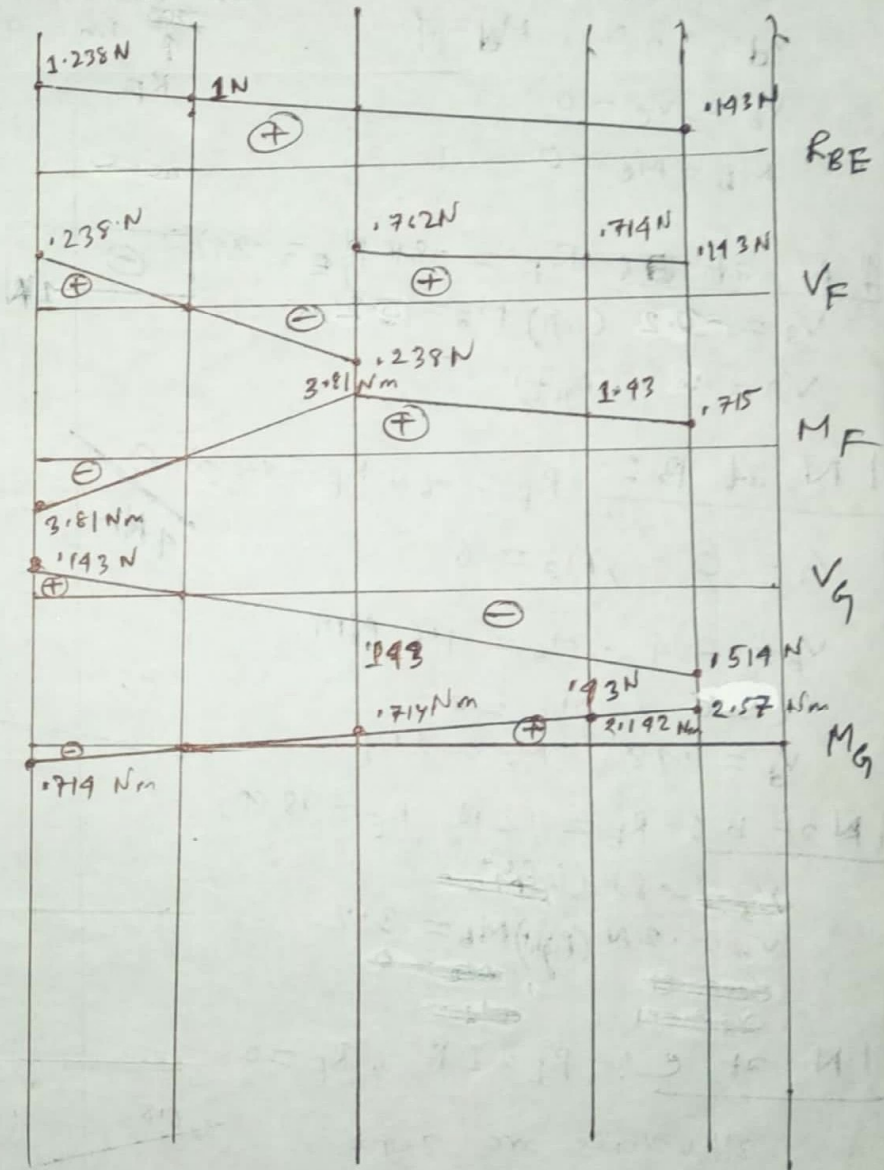 1.238 N
1N
+
.143N
R_BE
.238 N
.762N
.714N
.143N
+
+
V_F
-
.238N
3.81 Nm
1.43
.715
+
M_F
-
3.81 Nm
.143 N
+
V_G
-
.143
.514 N
.43N
.714 Nm
+
2.142 Nm
2.57 Nm
-
M_G
.714 Nm
1 N at